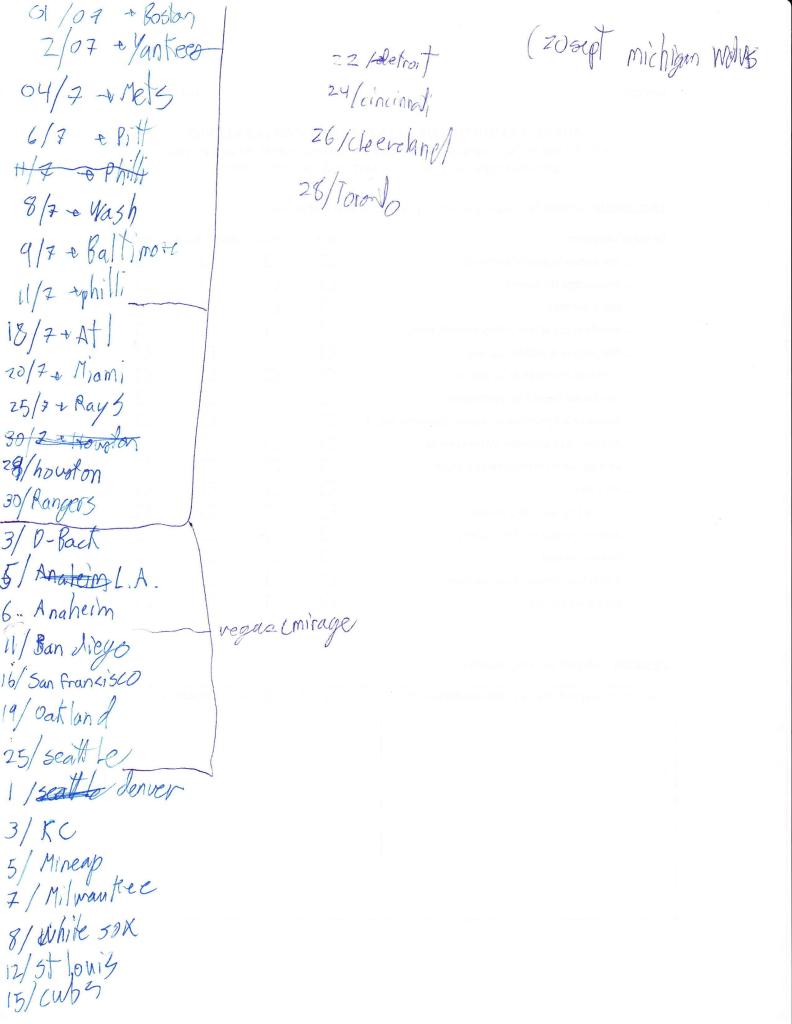 01/07 → Boston
2/07 → Yankees
04/7 → Mets
6/7 → Pitt
11/7 → Philli
8/7 → Wash
9/7 → Baltimore
11/7 → philli
18/7 → Atl
20/7 → Miami
25/7 → Rays
30/7 → Houston
28/houston
30/Rangers
3/ D-Back
5/ Anaheim L.A.
6.. Anaheim
vegas (mirage
11/ San diego
16/ San francisco
19/ Oakland
25/ seattle
1 /seattle denver
3/ KC
5/ Mineap
7/ Milwaukee
8/ White sox
12/ St louis
15/ cubs
22/detroit
24/cincinnati
26/cleeveland
28/Toronto
(20sept michigan